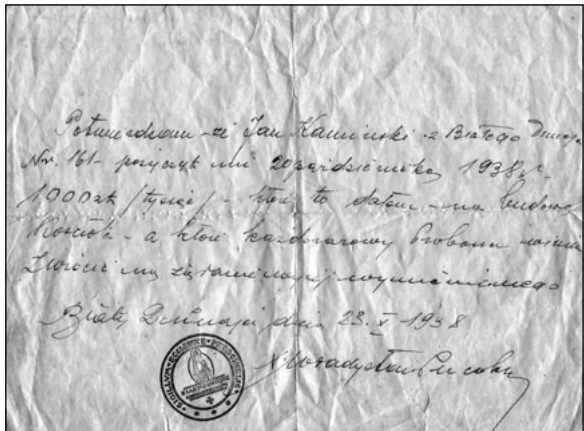 Potwierdzam -że Jan Kamiński z Białego Dunajca
Nr. 161- pożyczył mi 20 października 1938 r-
1000 zł /tysiąc/ - które to dałem - na budowę
Kościoła - a które każdorazowy Proboszcz winien
zwrócić na żądanie wyżej wymienionego
Biały Dunajec, dnia 23. X 1938
X. Władysław
SIGILLUM ECCLESIAE